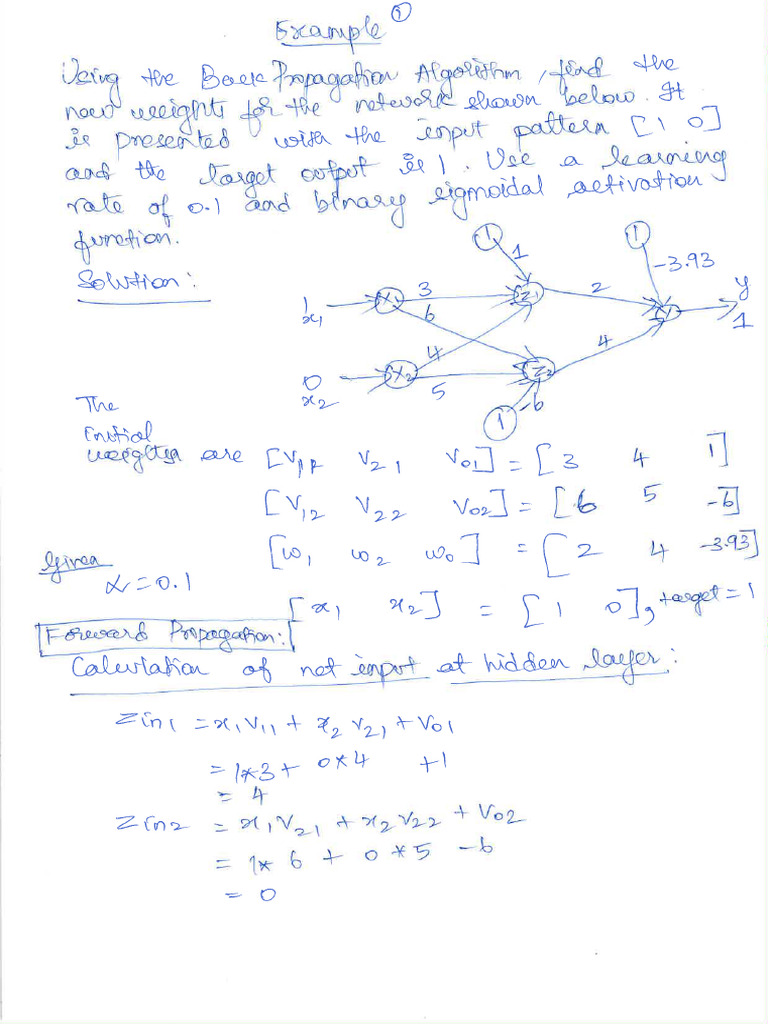 Example 1
Using the Back Propagation Algorithm, find the
new weights for the network shown below. It
is presented with the input pattern [1 0]
and the target output is 1. Use a learning
rate of 0.1 and binary sigmoidal activation
function.
Solution:
1 1
1 -3.93
1 x1 X1 3 Z1 2 Y y 1
6
4 4
0 x2 X2 5 Z2
1 -6
The
initial
weights are [V11 V21 V01] = [3 4 1]
[V12 V22 V02] = [6 5 -6]
[w1 w2 w0] = [2 4 -3.93]
Given
α=0.1
[x1 x2] = [1 0], target = 1
Forward Propagation:
Calculation of net input at hidden layer:
Zin1 = x1V11 + x2V21 + V01
= 1*3 + 0*4 +1
= 4
Zin2 = x1V21 + x2V22 + V02
= 1*6 + 0*5 -6
= 0